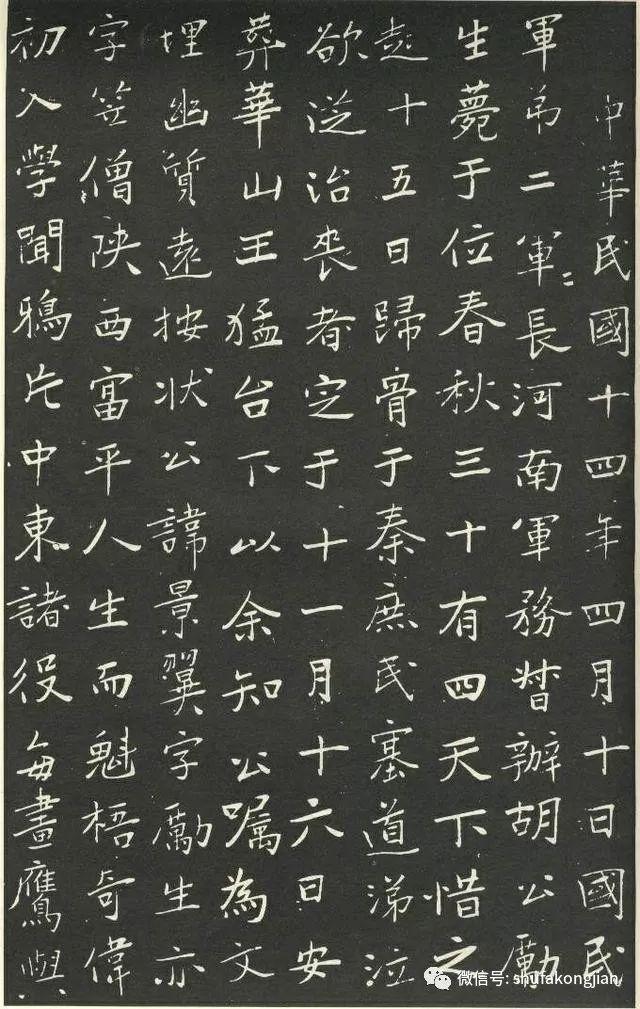 中華民國十四年四月十日國民
軍弟二軍〻長河南軍務督辦胡公勵
生薨于位春秋三十有四天下惜之
越十五日歸骨于秦庶民塞道涕泣
欲從治喪者定于十一月十六日安
葬華山王猛台下以余知公嘱為文
埋幽質遠按状公諱景翼字勵生亦
字笠僧陕西富平人生而魁梧奇偉
初入學聞鴉片中東諸役每畫鷹與
微信号: shufakongjian